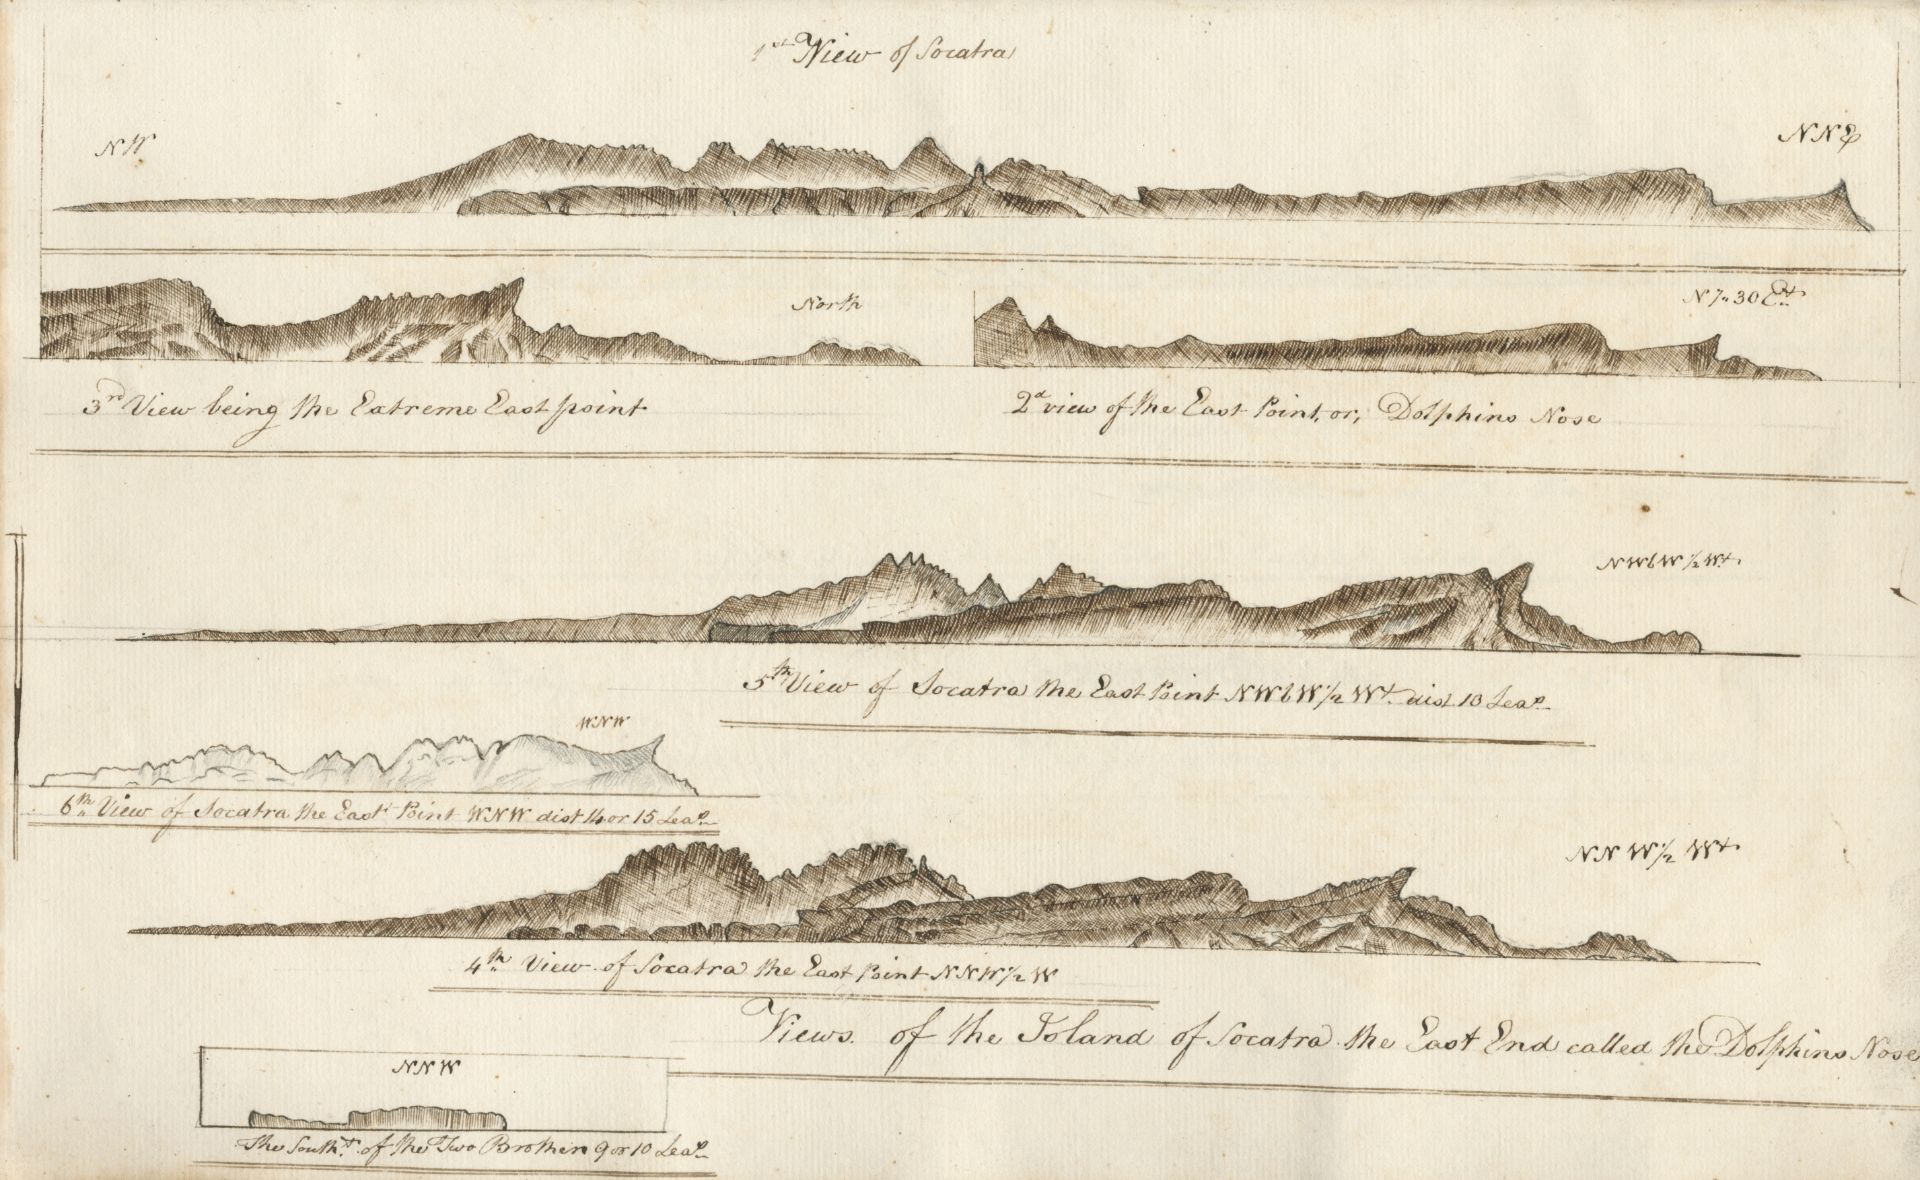 1st View of Socatra
NW
NNE
North
N 7" 30 Et
3rd View being the Extreme East point
2d view of the East Point, or, Dolphins Nose
NWbW 1/2 Wt
5th View of Socatra the East Point NWbW 1/2 Wt dist 10 Leas
WNW
6th View of Socatra the East Point WNW dist 14 or 15 Leas
NNW 1/2 Wt
4th View of Socatra the East Point NNW 1/2 W
Views of the Island of Socatra the East End called the Dolphins Nose
NNW
The Southt of the Two Brothers 9 or 10 Leas